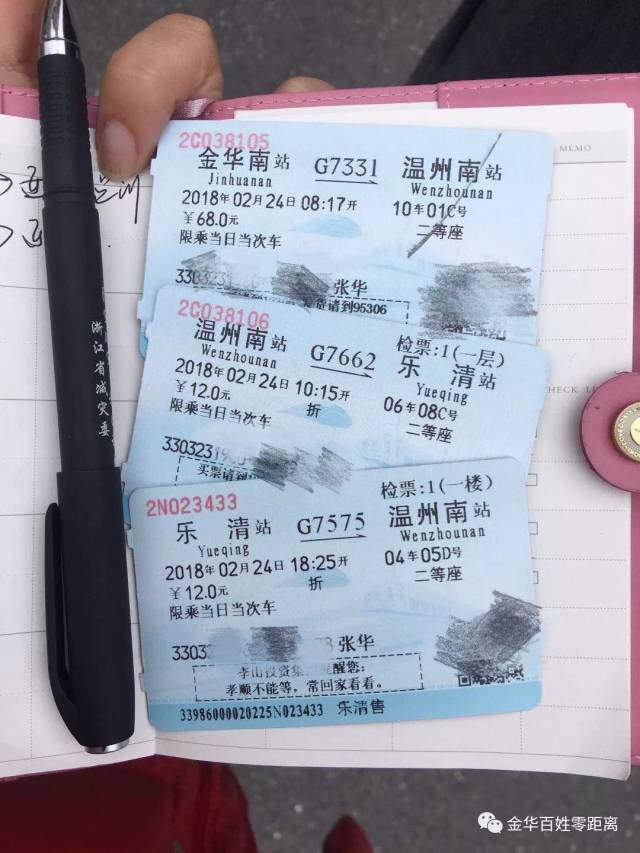 MEMO
CHECK LI
浙江省减灾委
2C038105
金华南站 G7331 温州南站
Jinhuanan Wenzhounan
2018年02月24日 08:17开 10车01C号
￥68.0元 二等座
限乘当日当次车
330323 张华
请到95306
2C038106 检票:1(一层)
温州南站 G7662 乐清站
Wenzhounan Yueqing
2018年02月24日 10:15开 06车08C号
￥12.0元 折 二等座
限乘当日当次车
330323
买票请到
2N023433 检票:1(一楼)
乐清站 G7575 温州南站
Yueqing Wenzhounan
2018年02月24日 18:25开 04车05D号
￥12.0元 折 二等座
限乘当日当次车
33032 张华
提醒您:
孝顺不能等，常回家看看。
33986000020225N023433 乐清售
金华百姓零距离